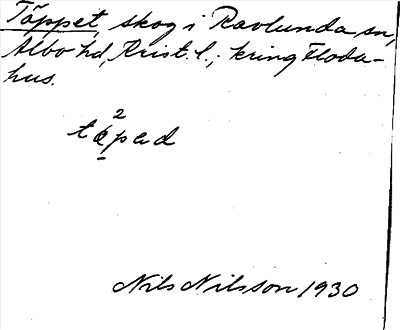 Täppet, skog i Ravlunda sn,
Albo hd, Krist. l.; kring Floda-
hus.
Nils Nilsson 1930